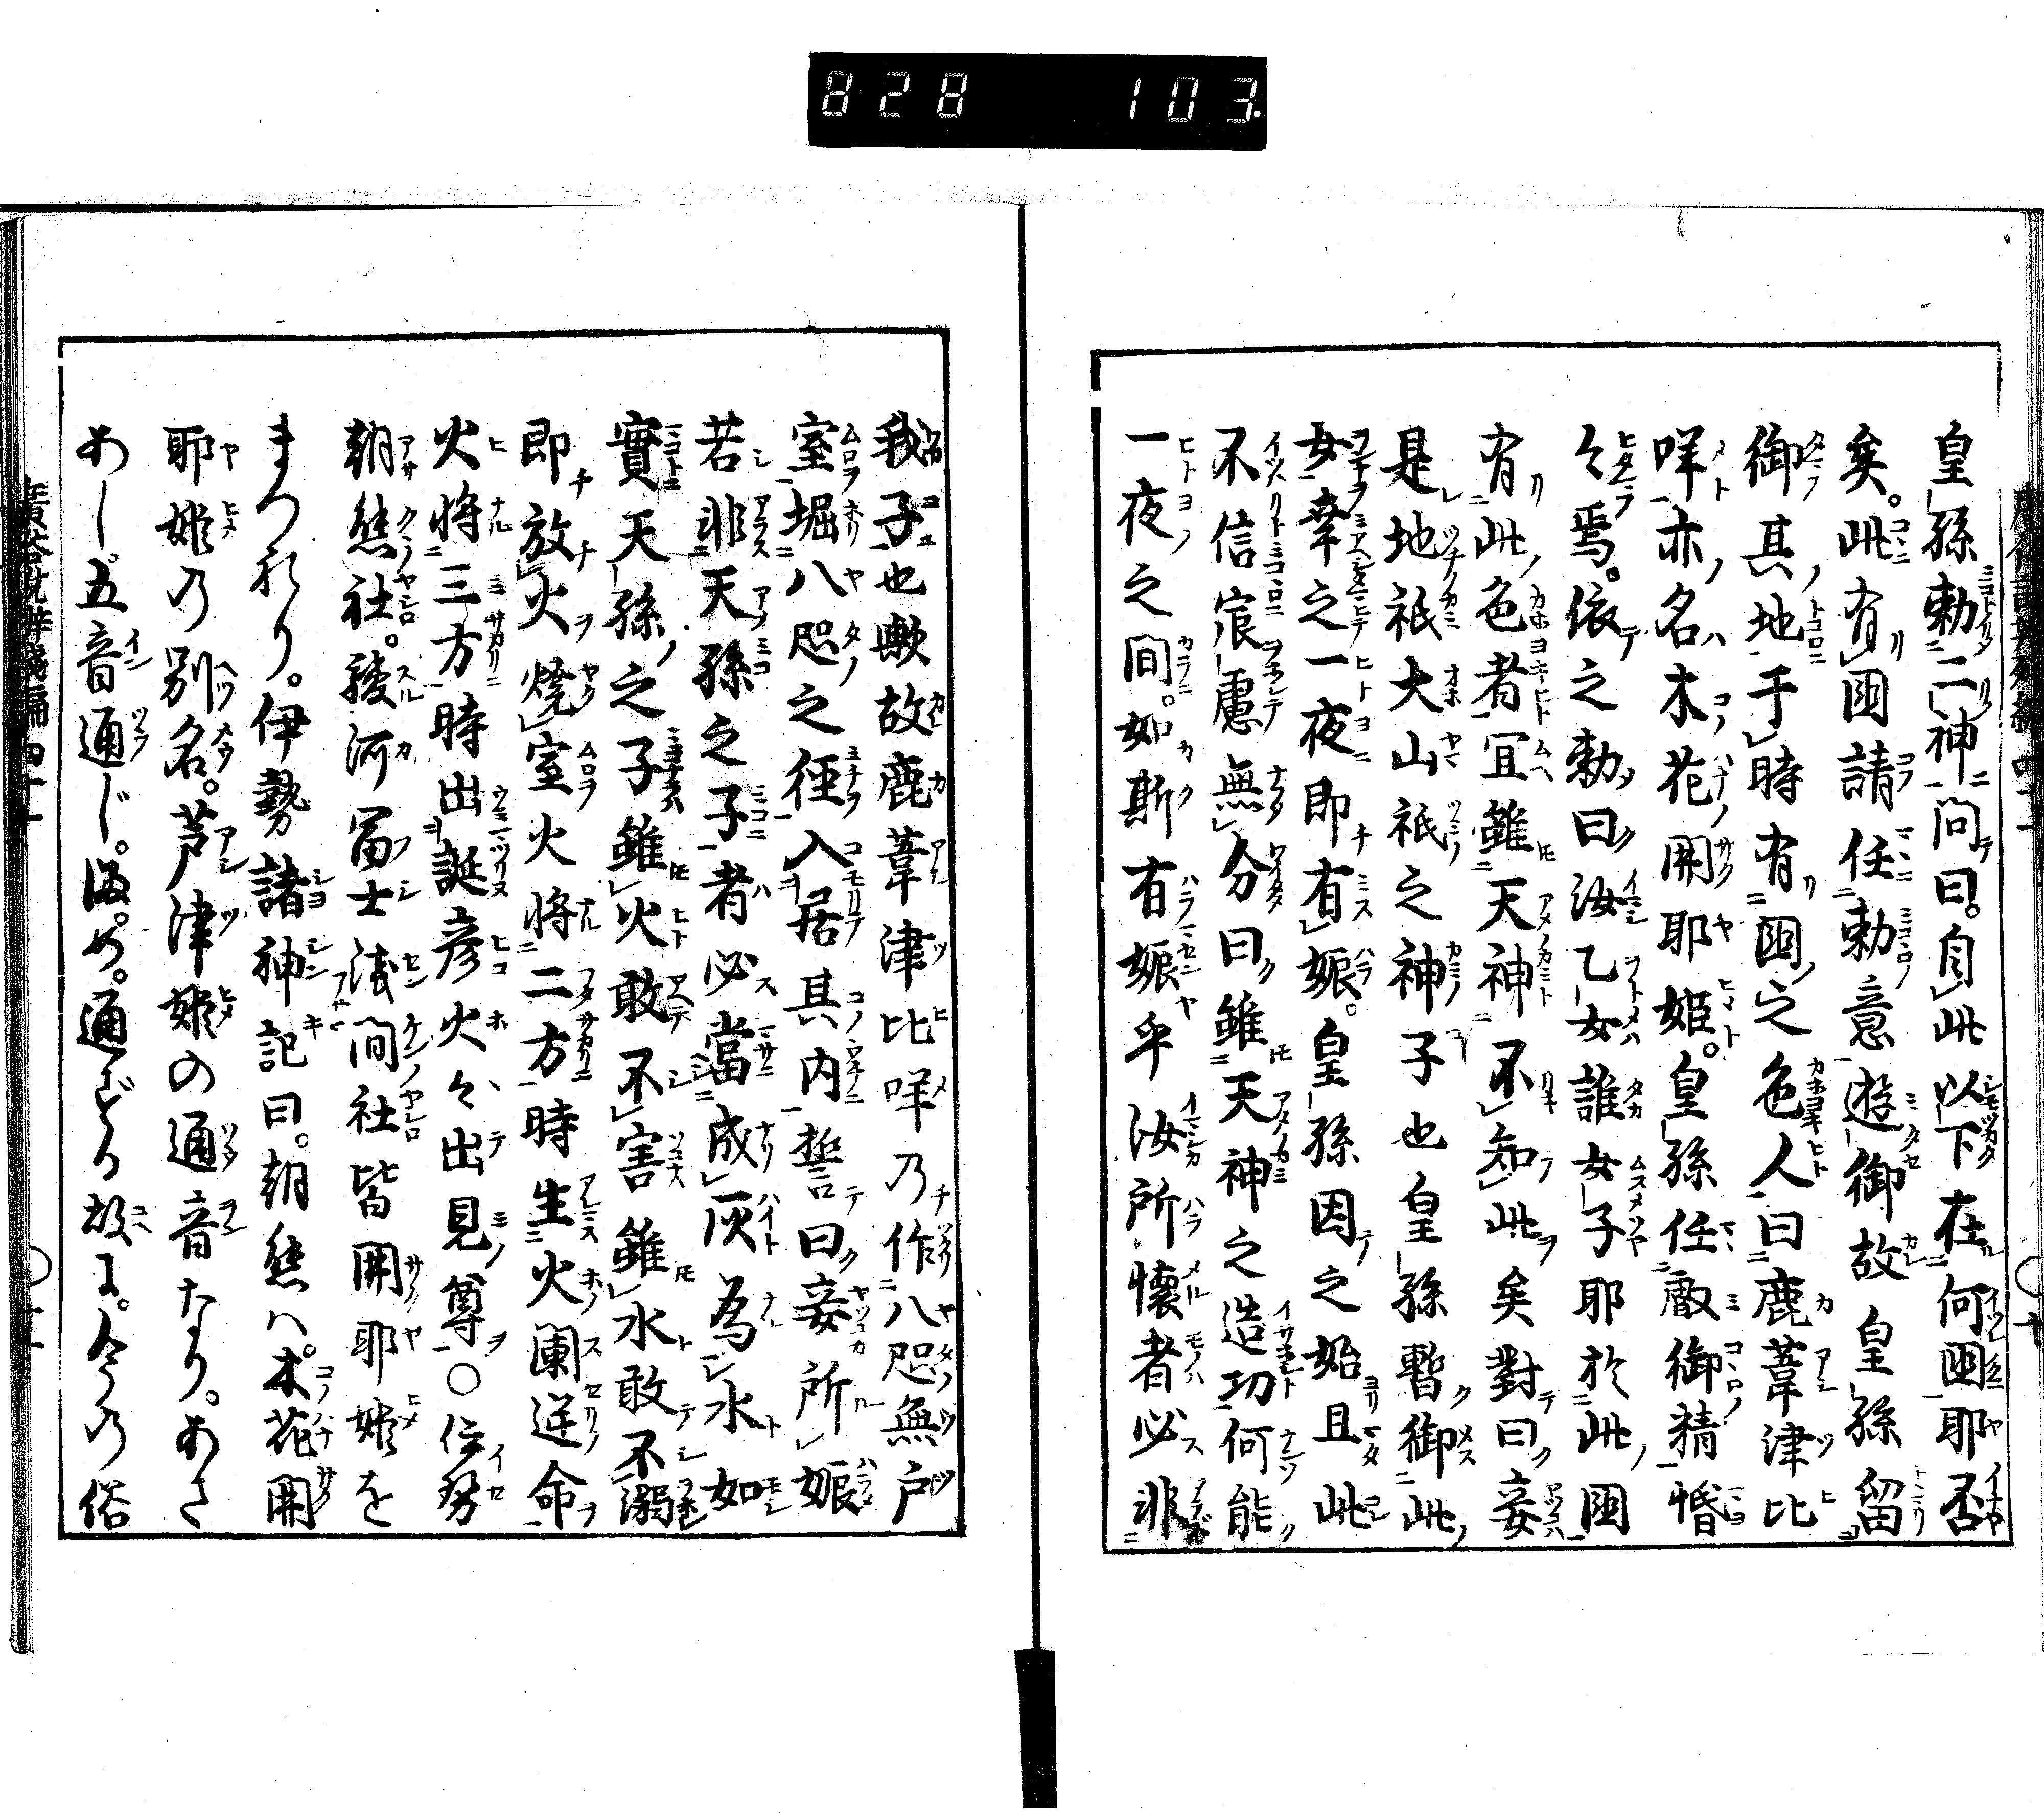 828 103
皇孫勅二神問曰。自此以下在何国耶否
矣。此有国請任勅意遊御故皇孫留
御其地于時有国之色人曰鹿葦津比
咩亦名木花開耶姫。皇孫任敵御精惛
々焉。依之勅曰汝乙女誰女子耶於此国
有此色者宜雖天神不知此矣對曰妾
是地祇大山祇之神子也皇孫暫御此
女幸之一夜即有娠。皇孫因之始且此
不信宸慮無分曰雖天神之造功何能
一夜之間。如斯有娠乎汝所懐者必非
我子也歟故鹿葦津比咩乃作八咫無戸
室堀八咫之径入居其内誓曰妾所娠
若非天孫之子者必當成灰為水如
實天孫之子雖火敢不害雖水敢不溺
即放火焼室火将二方時生火闌逆命
火将三方時出誕彦火々出見尊〇伊勢
朝熊社。駿河冨士浅間社皆開耶姫を
まつれり。伊勢諸神記曰。朝熊ハ。木花開
耶姫乃別名。芦津姫の通音なり。あさ
あし。五音通じ。ま。め。通ずる故に。今乃俗